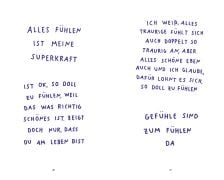 ALLES FÜHLEN
IST MEINE
SUPERKRAFT
IST OK, SO DOLL
ZU FÜHLEN, WEIL
DAS WAS RICHTIG
SCHÖNES IST, ZEIGT
DOCH NUR, DASS
DU AM LEBEN BIST
ICH WEIß, ALLES
TRAURIGE FÜHLT SICH
AUCH DOPPELT SO
TRAURIG AN, ABER
ALLES SCHÖNE EBEN
AUCH UND ICH GLAUBE,
DAFÜR LOHNT ES SICH,
SO DOLL ZU FÜHLEN
GEFÜHLE SIND
ZUM FÜHLEN
DA